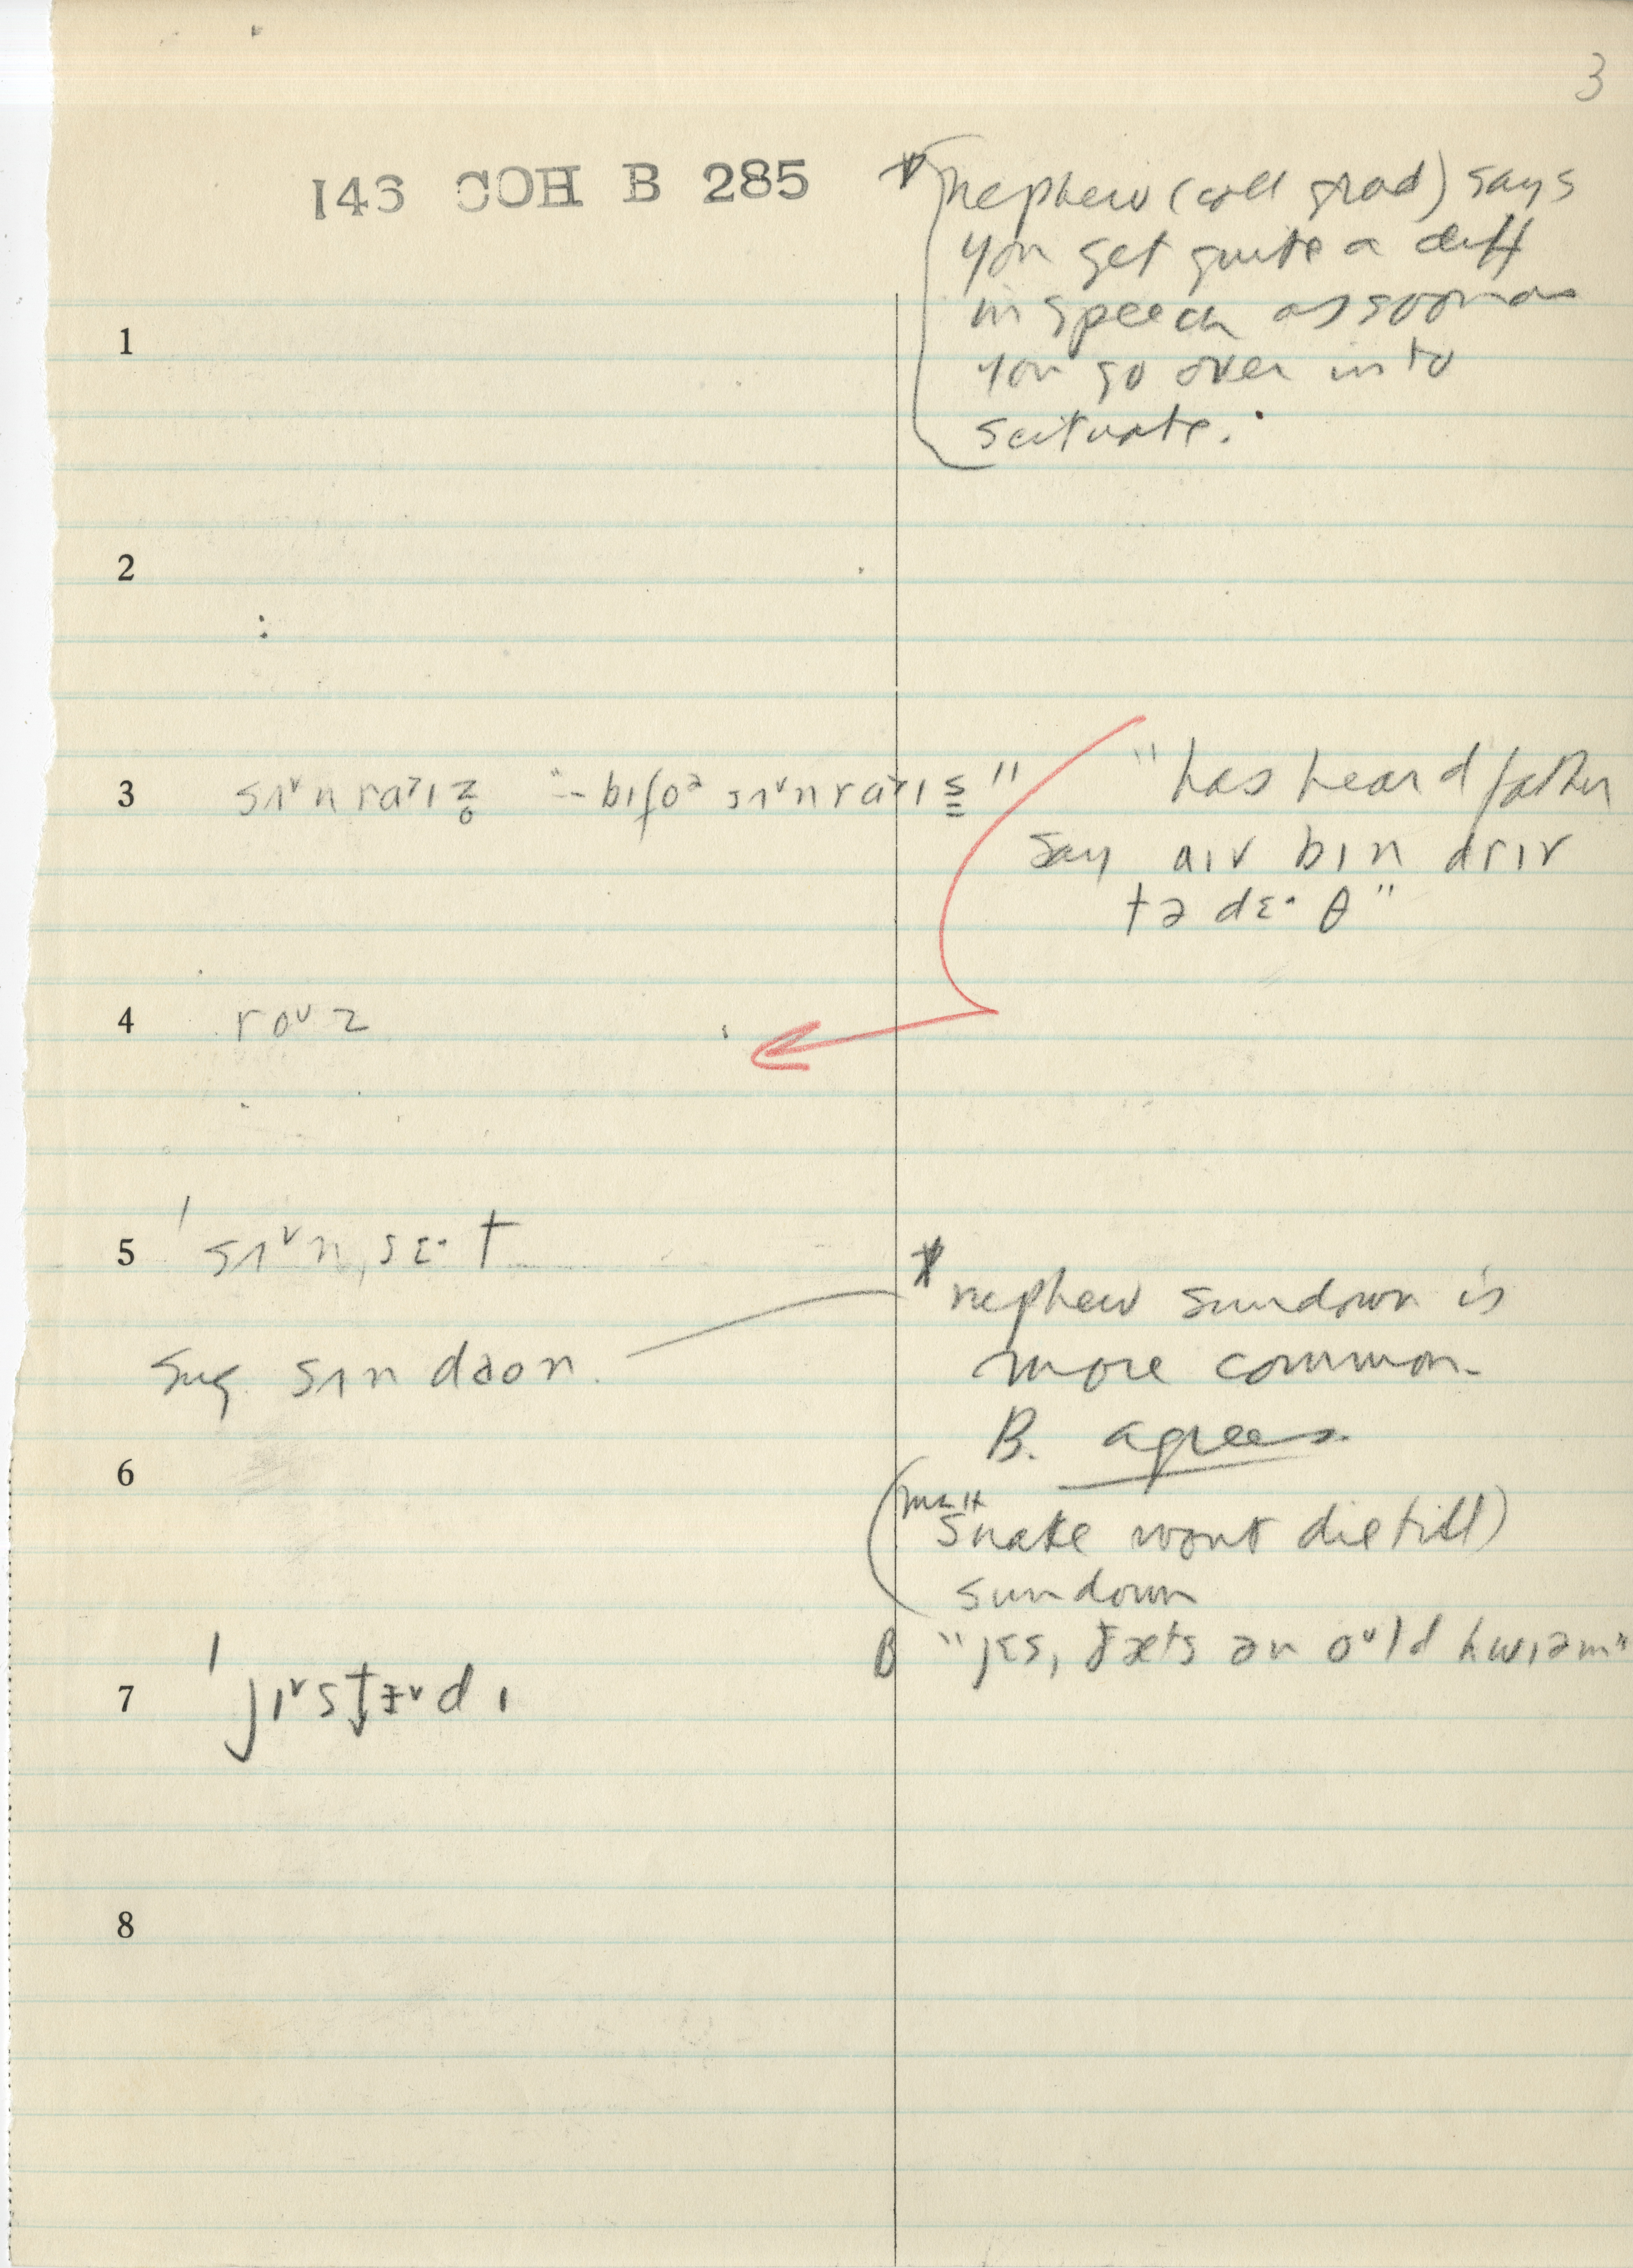 3
146 COH B 285
* nephew (coll grad) says
you get quite a diff
in speech as soon as
you go over into
Scituate.
1
2
3 sɪᵛnraɪz̥ "– bɪfoᵊ sɪᵛnraɪs̳" "has heard father
say aɪv bɪn drɪv
tə dɛ· θ"
4 roᵘz
5 ˈsɪᵛnˌsɛ·t
* nephew sundown is
sug. sʌn daon. more common.
B. agrees.
6
snake wont die till)
sundown
B "jɛs, ðæts ən oᵘld hwɪəm"
7 ˈjɪᵛst̬ɨᵛdɪ
8